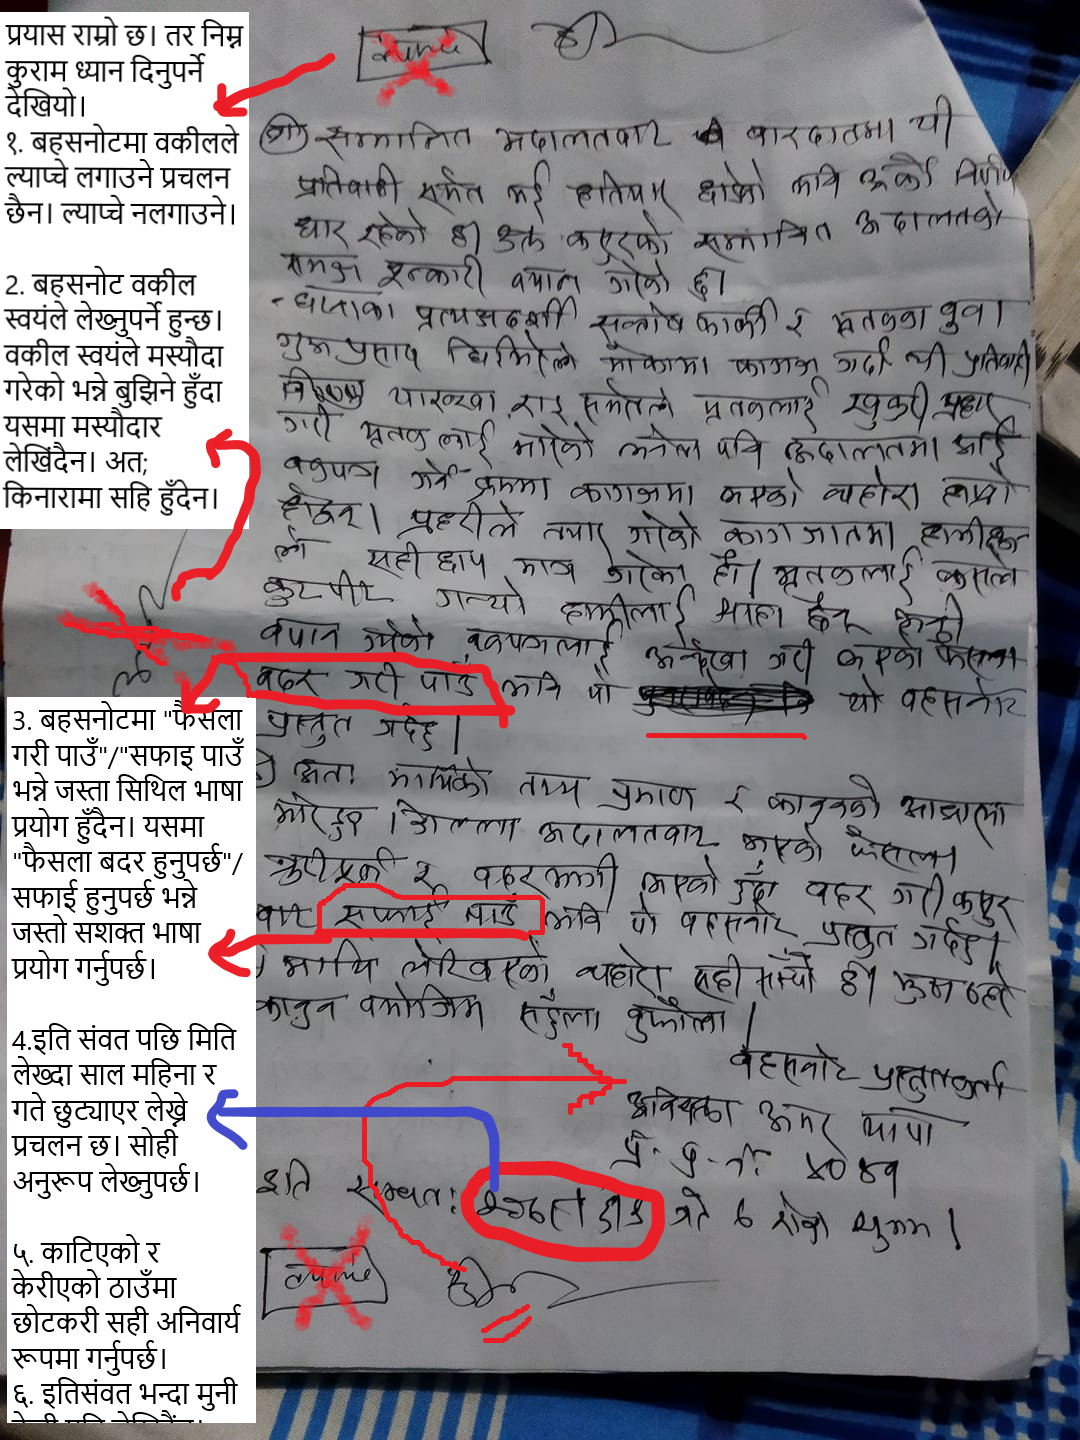 प्रयास राम्रो छ। तर निम्न
कुराम ध्यान दिनुपर्ने
देखियो।
१. बहसनोटमा वकीलले
ल्याप्चे लगाउने प्रचलन
छैन। ल्याप्चे नलगाउने।
2. बहसनोट वकील
स्वयंले लेख्नुपर्ने हुन्छ।
वकील स्वयंले मस्यौदा
गरेको भन्ने बुझिने हुँदा
यसमा मस्यौदार
लेखिंदैन। अत;
किनारामा सहि हुँदेन।
3. बहसनोटमा "फैसला
गरी पाउँ"/"सफाइ पाउँ
भन्ने जस्ता सिथिल भाषा
प्रयोग हुँदैन। यसमा
"फैसला बदर हुनुपर्छ"/
सफाई हुनुपर्छ भन्ने
जस्तो सशक्त भाषा
प्रयोग गर्नुपर्छ।
4.इति संवत पछि मिति
लेख्दा साल महिना र
गते छुट्याएर लेख्ने
प्रचलन छ। सोही
अनुरूप लेख्नुपर्छ।
५. काटिएको र
केरीएको ठाउँमा
छोटकरी सही अनिवार्य
रूपमा गर्नुपर्छ।
६. इतिसंवत भन्दा मुनी
सम्मानित अदालतबाट वारदातमा यी
प्रतिवादी समेत भई हतियार छाडेको भनि अर्को
धार रहेको छ। उक्त कसुरको सम्मानित अदालतको
समक्ष इन्कारी बयान गरेको छ।
- घटनाका प्रत्यक्षदर्शी सन्तोष कार्की र मृतकका बुवा
गुरुप्रसाद घिमिरेले मौकामा कागज गर्दा यी प्रतिवादी
याख्खा राई समेतले मृतकलाई खुकुरी प्रहार
गरी मृतकलाई मारेको भनेता पनि अदालतमा आई
बकपत्र गर्ने क्रममा कागजमा भएको व्यहोरा हाम्रो
होइन। प्रहरीले तयार गरेको कागजातमा हामीहरु
ले सही छाप मात्र गरेका हौं। मृतकलाई कसले
कुटपीट गर्‍यो हामीलाई थाहा छैन भनी
बयान गरेको बकपत्रलाई अनदेखा गरी भएको फैसला
बदर गरी पाउँ भनि यो यो बहसनोट
प्रस्तुत गर्दछु।
अतः माथिको तथ्य प्रमाण र कानूनको आधारमा
जिल्ला अदालतबाट भएको फैसला
त्रुटीपूर्ण र बदरभागी भएको हुँदा बदर गरी कसुर
बाट सफाई पाउँ भनि यो बहसनोट प्रस्तुत गर्दछु।
माथि लेखिएको व्यहोरा सही साँचो छ। झुठा ठहरे
कानुन बमोजिम सहुँला बुझाउँला।
बहसनोट प्रस्तुतकर्ता
अधिवक्ता अमर थापा
प्र. प्र. नं. ४०४१
इति सम्वत: गते ६ रोज शुभम।